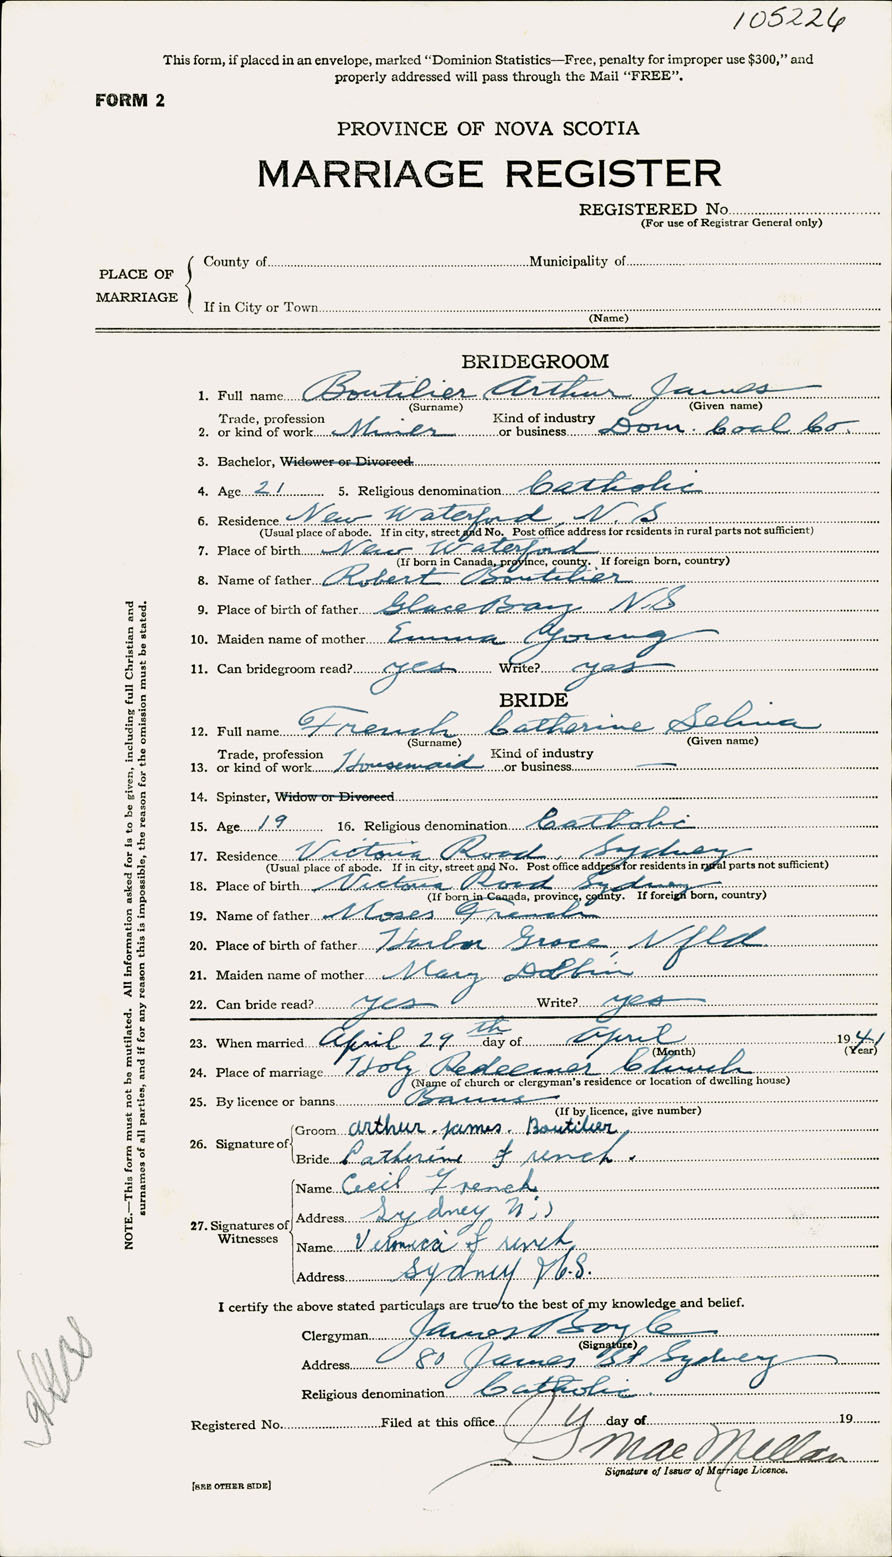 105226
This form, if placed in an envelope, marked "Dominion Statistics—Free, penalty for improper use $300," and
properly addressed will pass through the Mail "FREE".
FORM 2
PROVINCE OF NOVA SCOTIA
MARRIAGE REGISTER
REGISTERED No.
(For use of Registrar General only)
PLACE OF MARRIAGE
County of Municipality of
If in City or Town
(Name)
BRIDEGROOM
1. Full name Boutilier Arthur James
(Surname) (Given name)
2. Trade, profession or kind of work Miner Kind of industry or business Dom. Coal Co.
3. Bachelor, Widower or Divorced
4. Age 21 5. Religious denomination Catholic
6. Residence New Waterford, N.S
(Usual place of abode. If in city, street and No. Post office address for residents in rural parts not sufficient)
7. Place of birth New Waterford
(If born in Canada, province, county. If foreign born, country)
8. Name of father Robert Boutilier
9. Place of birth of father Glace Bay N.S
10. Maiden name of mother Emma Young
11. Can bridegroom read? yes Write? yes
BRIDE
12. Full name French Catherine Selina
(Surname) (Given name)
13. Trade, profession or kind of work Housemaid Kind of industry or business —
14. Spinster, Widow or Divorced
15. Age 19 16. Religious denomination Catholic
17. Residence Victoria Road, Sydney
(Usual place of abode. If in city, street and No. Post office address for residents in rural parts not sufficient)
18. Place of birth Victoria Road Sydney
(If born in Canada, province, county. If foreign born, country)
19. Name of father Moses French
20. Place of birth of father Harbor Grace, Nfld
21. Maiden name of mother Mary
22. Can bride read? yes Write? yes
23. When married April 29th day of April 1941
(Month) (Year)
24. Place of marriage Holy Redeemer Church
(Name of church or clergyman's residence or location of dwelling house)
25. By licence or banns Banns
(If by licence, give number)
26. Signature of
Groom Arthur. James. Boutilier
Bride Catherine French.
27. Signatures of Witnesses
Name Cecil French
Address Sydney N.S
Name Veronica French
Address Sydney N.S.
I certify the above stated particulars are true to the best of my knowledge and belief.
Clergyman James Boyle
(Signature)
Address 80 James St Sydney
Religious denomination Catholic.
Registered No. Filed at this office day of 19
MacMillan
Signature of Issuer of Marriage Licence.
[SEE OTHER SIDE]
NOTE.—This form must not be mutilated. All Information asked for is to be given, including full Christian and
surnames of all parties, and if for any reason this is impossible, the reason for the omission must be stated.